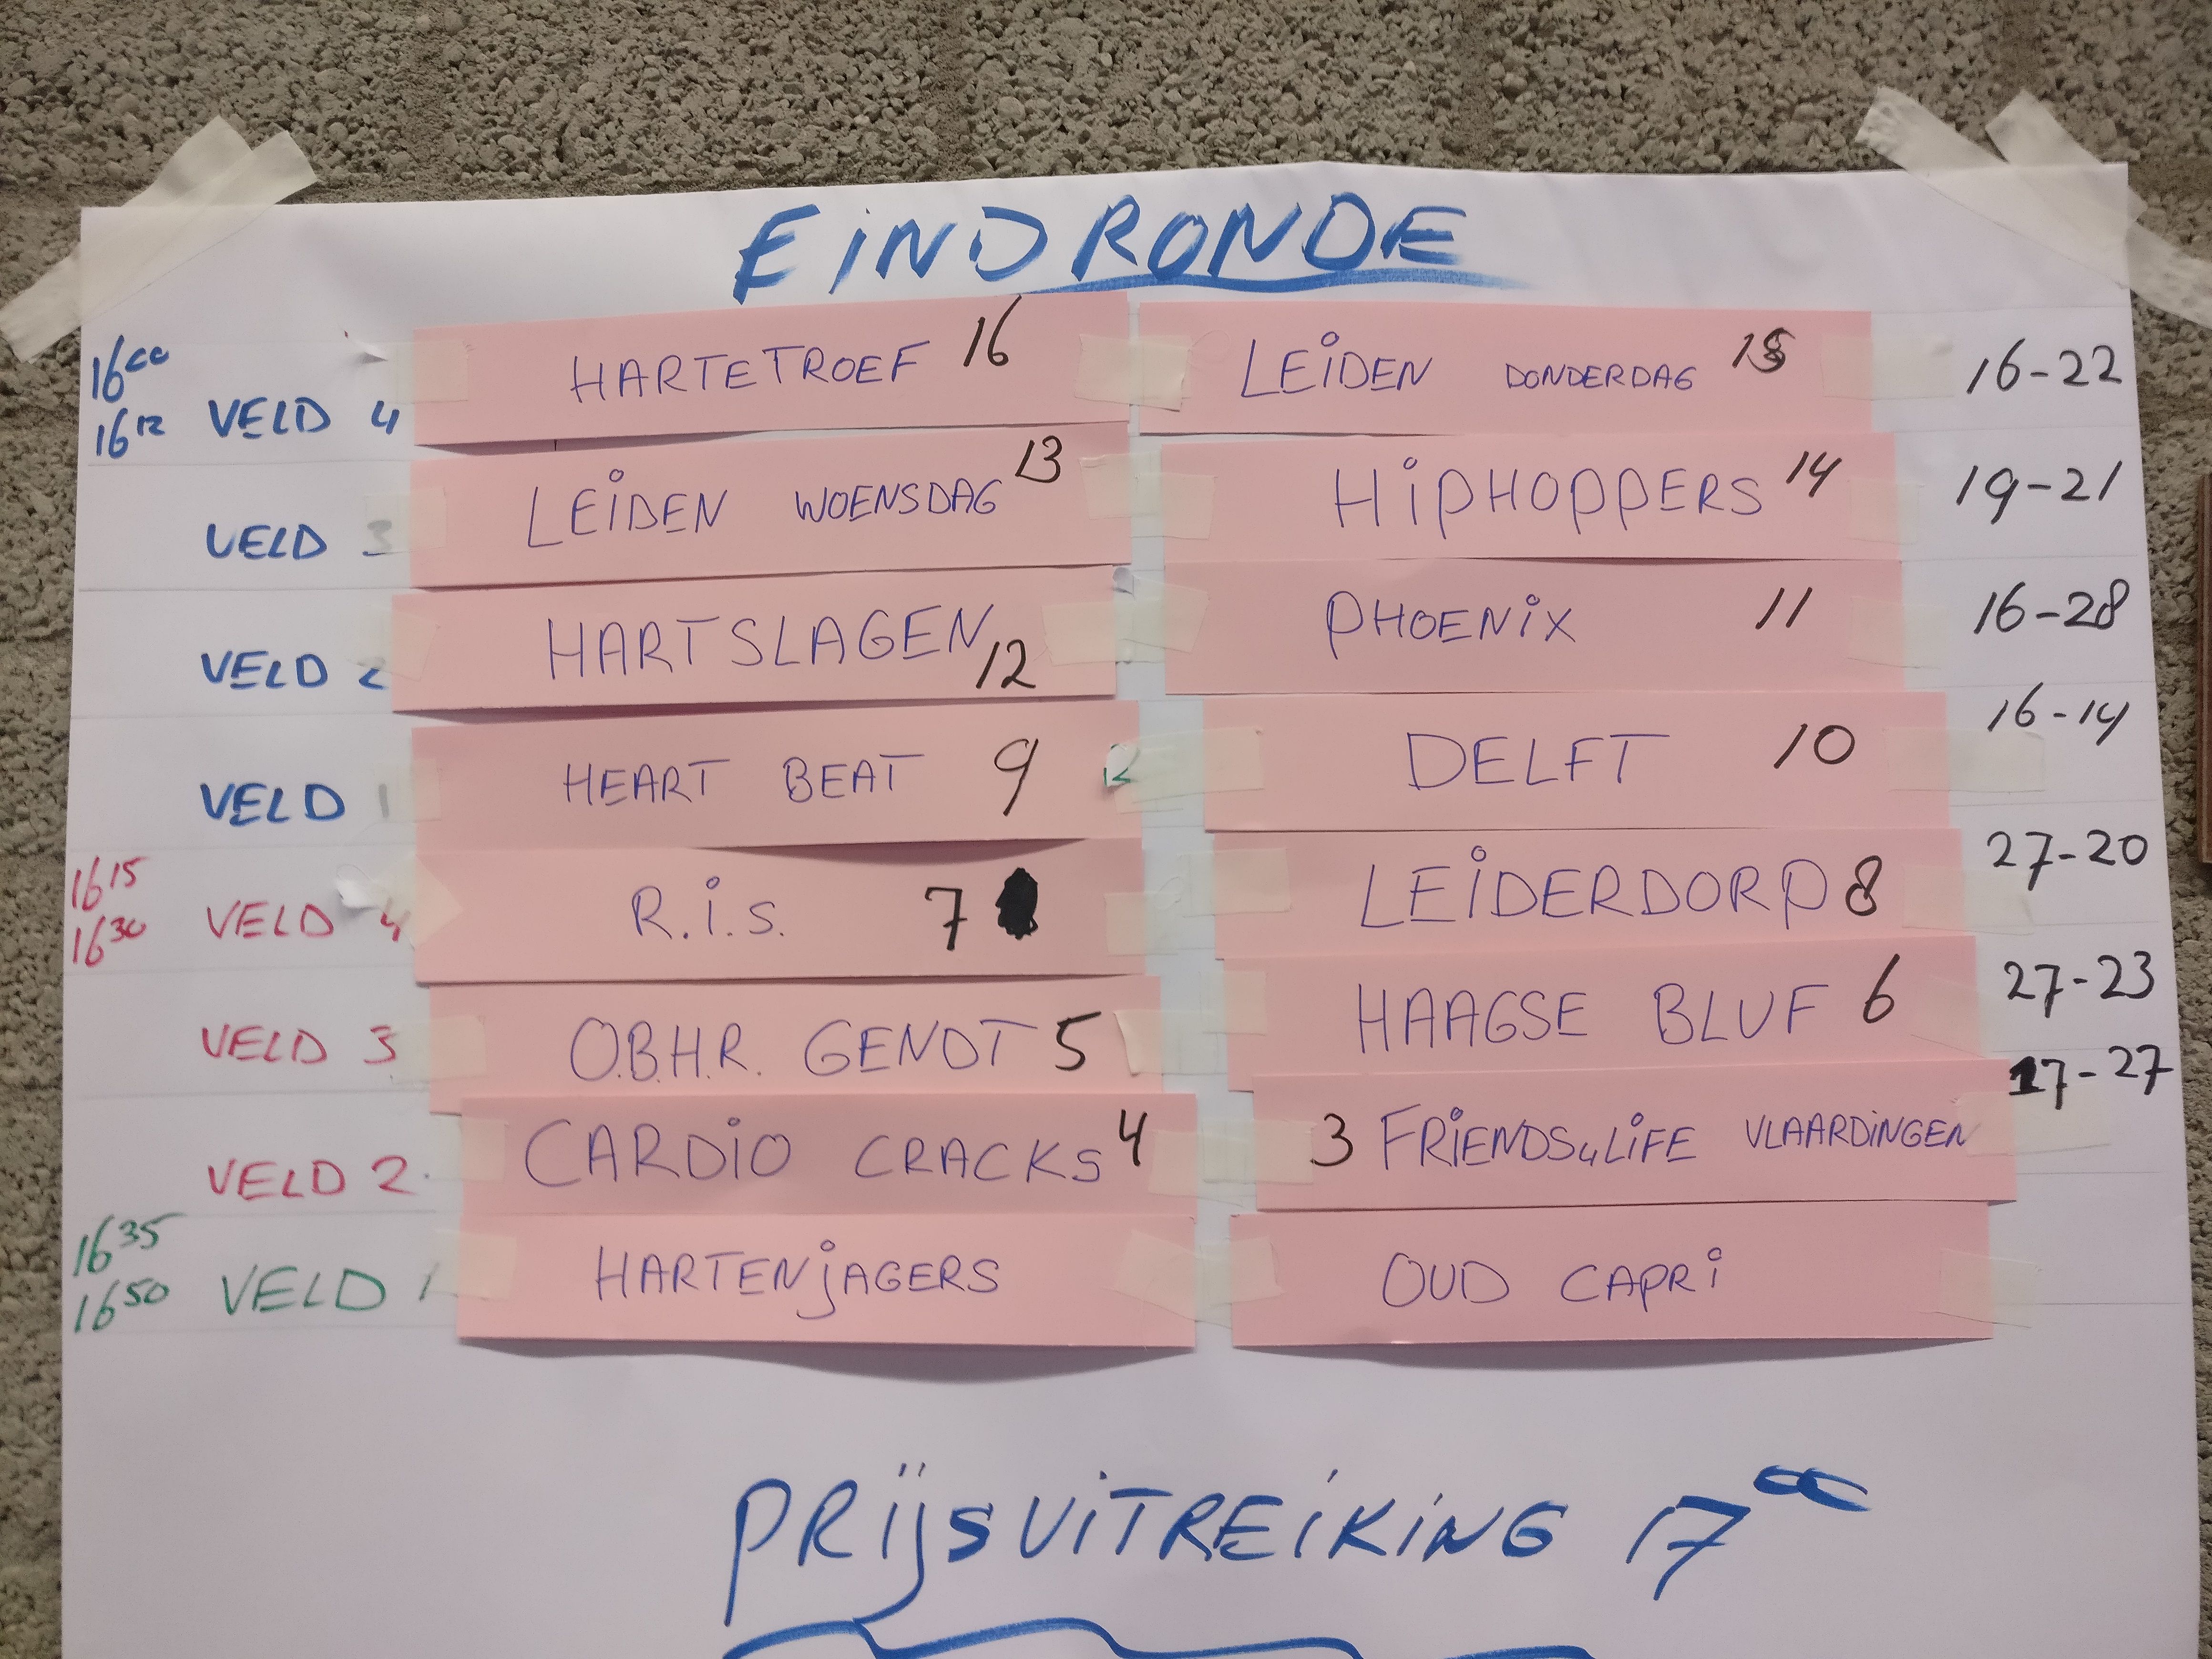 EINDRONDE
16⁰⁰
16¹² VELD 4 HARTETROEF 16 LEIDEN DONDERDAG 15 16-22
VELD 3 LEIDEN WOENSDAG 13 HIPHOPPERS 14 19-21
VELD 2 HARTSLAGEN 12 PHOENIX 11 16-28
VELD 1 HEART BEAT 9 DELFT 10 16-14
16¹⁵
16³⁰ VELD 4 R.I.S. 7 LEIDERDORP 8 27-20
VELD 3 O.B.H.R. GENOT 5 HAAGSE BLUF 6 27-23
VELD 2 CARDIO CRACKS 4 3 FRIENDS4LIFE VLAARDINGEN 17-27
16³⁵
16⁵⁰ VELD 1 HARTENJAGERS OUD CAPRI
PRIJSUITREIKING 17⁰⁰